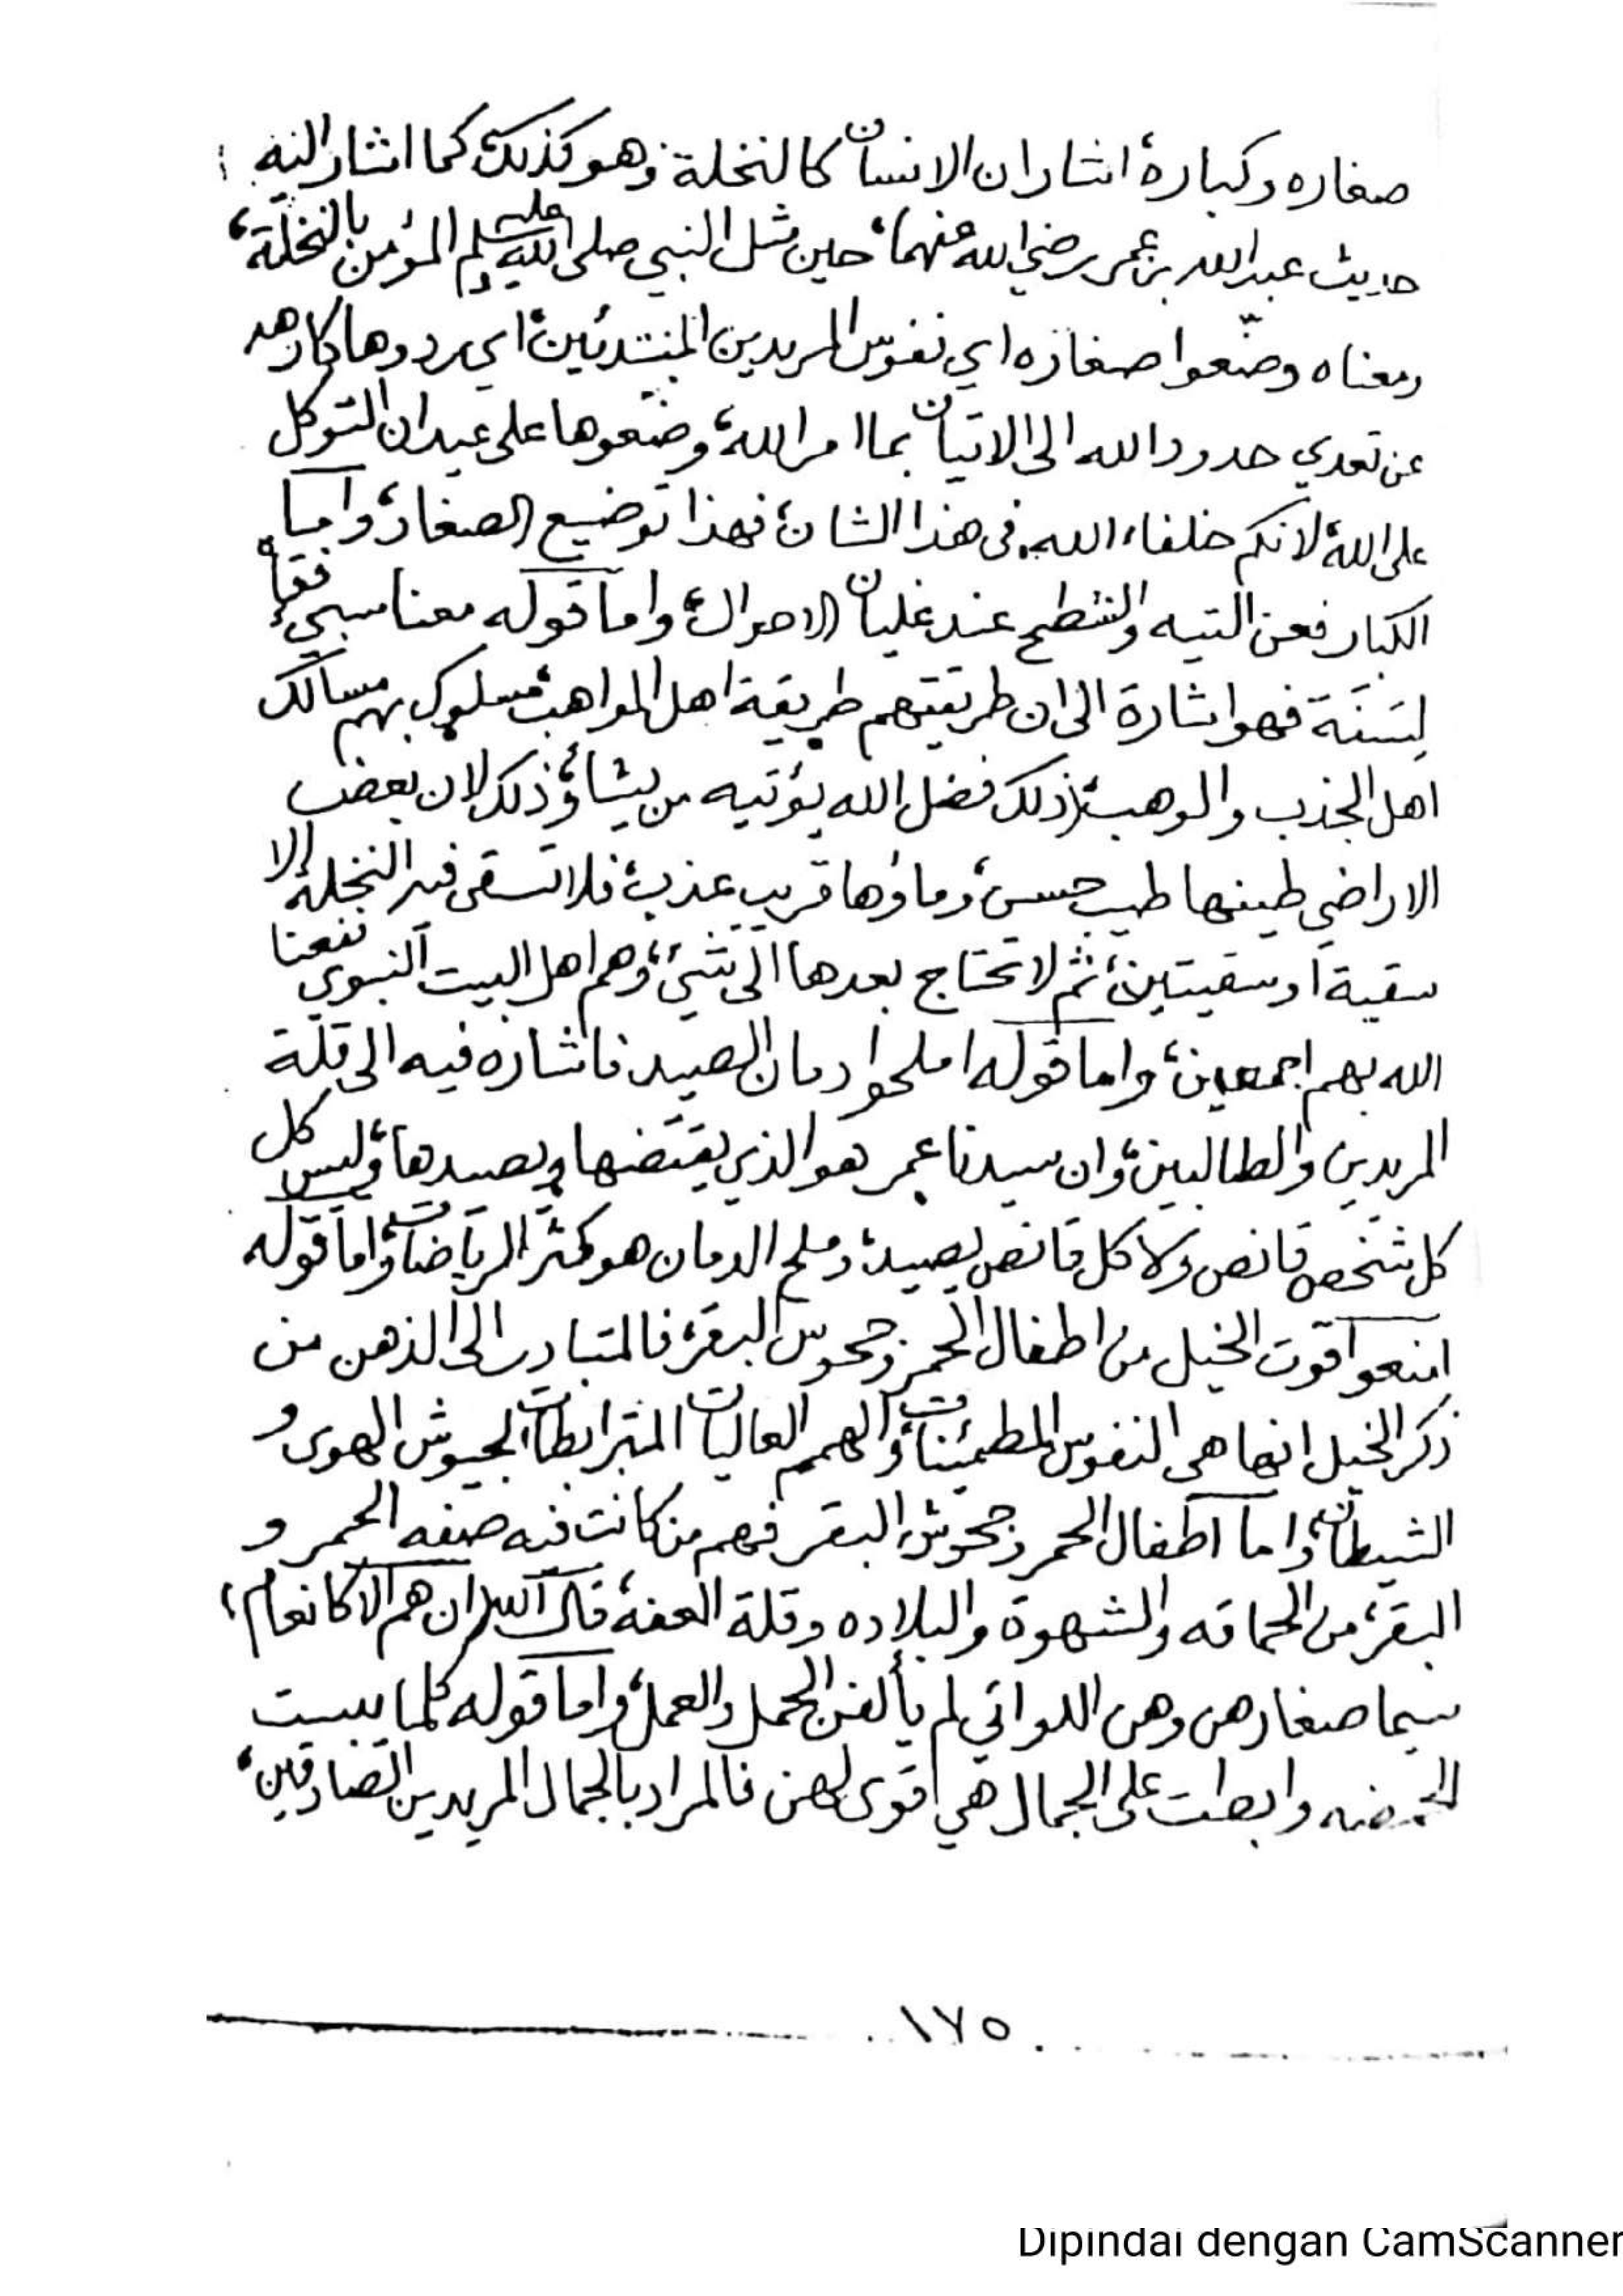 صغاره وكباره، اشار ان الانسان كالنخلة وهو كذلك كما اشار اليه
حديث عبدالله بن عمر رضي الله عنهما، حين مثل النبي صلى الله عليه وسلم المؤمن بالنخلة،
ومعناه وضّعوا صغاره اي نفوس المريدين المبتدئين، اي ردوها كارهه
عن تعدي حدود الله الى الاتيان بما امر الله، وضّعوها على عيدان التوكل
على الله، لانكم خلفاء الله في هذا الشان، فهذا توضيع الصغار، واما
الكبار فعن التيه والشطح عند غليان الاحوال، واما قوله معنا سبي فقا
لسنة فهو اشارة الى ان طريقتهم طريقة اهل المواهب، مسلوك بهم مسالك
اهل الجذب والوهب، (ذلك فضل الله يؤتيه من يشأ، وذلك لان بعض
الاراضي طينها طيب حسن، وماؤها قريب عذب، فلا تسقى فيه النخلة إلا
سقية او سقيتين، ثم لا تحتاج بعدها الى شيء، وهم اهل البيت النبوي نفعنا
الله بهم اجمعين، واما قوله املحوا دمان الصيد فاشاره فيه الى قلة
المريدين والطالبين، وان سيدنا عمر هو الذي يقتضها ويصيدها، وليس كل
كل شخص قانص ولا كل قانص يصيد، وملح الدمان هو كثر الرياضات، واما قوله
امنعوا قوت الخيل من اطفال الحمر وجحوس البقر، فالمتبادر الى الذهن من
ذكر الخيل انها هي النفوس المطمئنات، والهمم العاليات المترابطات لجيوش الهوى و
الشيطان، واما اطفال الحمر وجحوش البقر فهم من كانت فيه صفه الحمر و
البقر، من الحماقه والشهوة والبلاده وقلة العفه، قال الله (ان هم الا كانعام،
سيما صغارهن وهن اللواتي لم يألفن الحمل والعمل، واما قوله كلما يبست
الحمضه وابطت على الجمال هي اقوى لهن فالمراد بالجمال المريدين الصادقين،
١٧٥
Dipindai dengan CamScanner